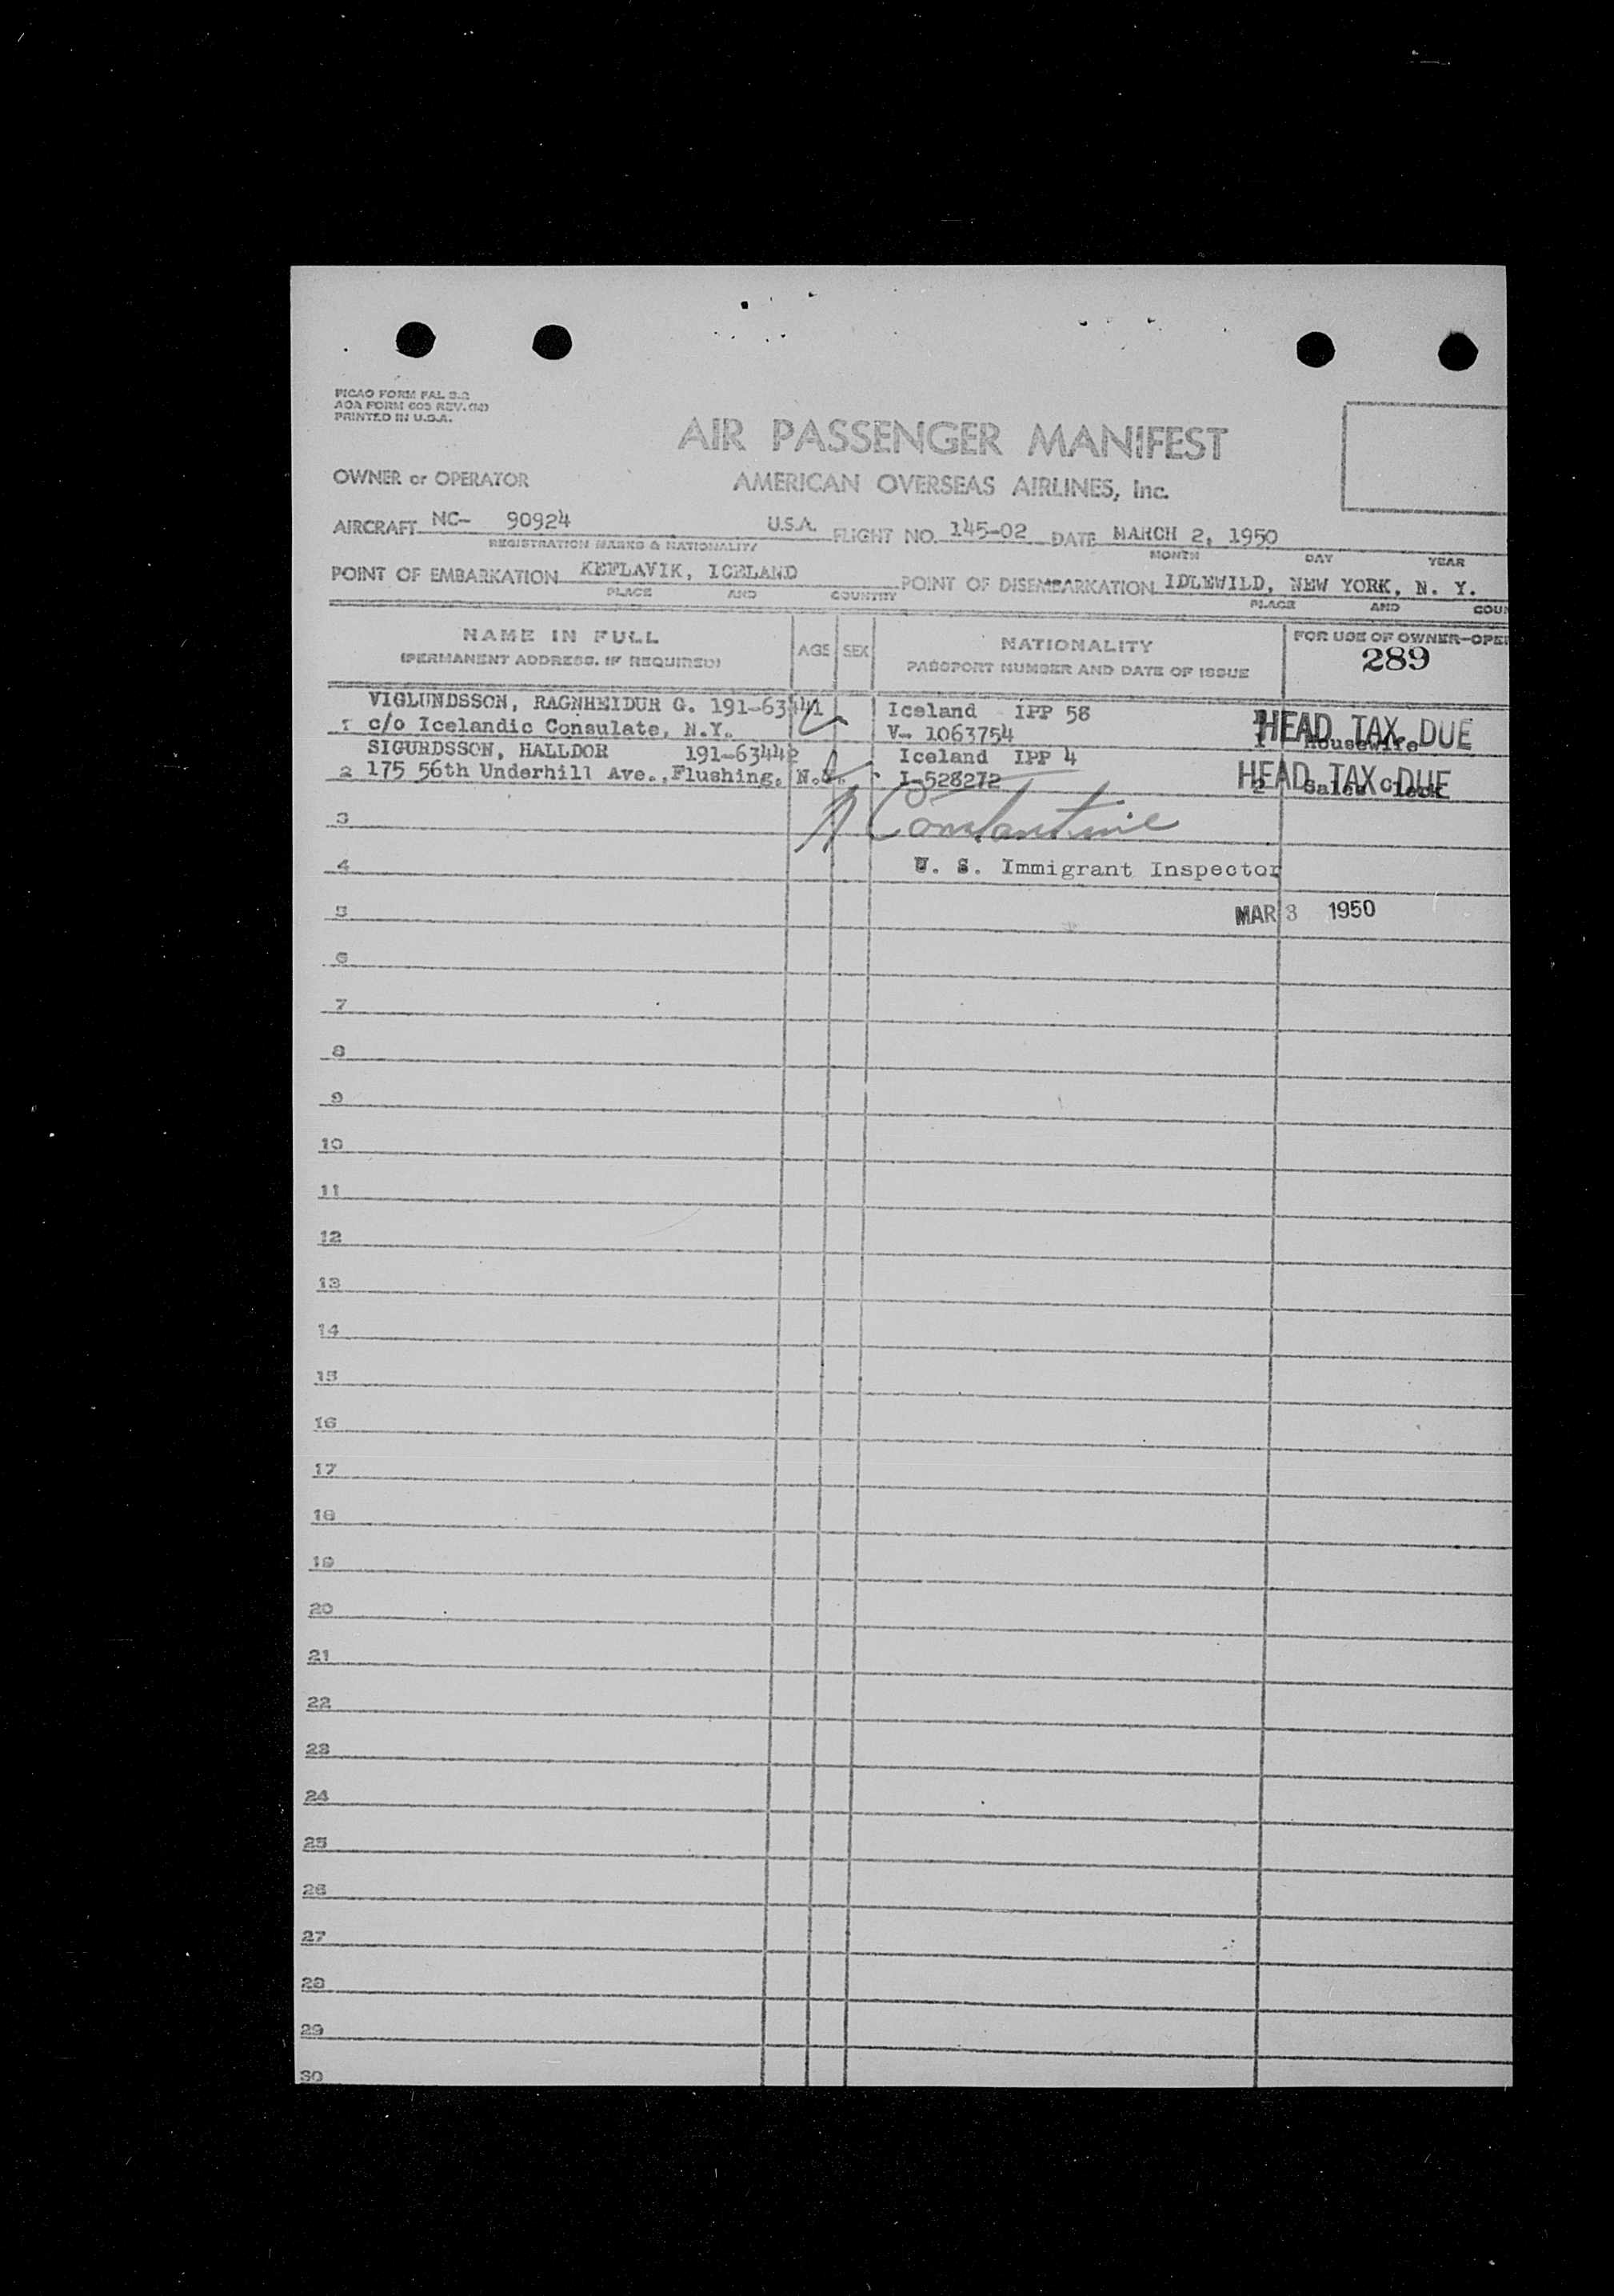 PICAO FORM FAL 2.2
AOA FORM 603 REV. (M)
PRINTED IN U.S.A.
AIR PASSENGER MANIFEST
OWNER or OPERATOR
AMERICAN OVERSEAS AIRLINES, Inc.
AIRCRAFT NC- 90924 U.S.A. FLIGHT NO. 145-02 DATE MARCH 2, 1950
REGISTRATION MARKS & NATIONALITY MONTH DAY YEAR
POINT OF EMBARKATION KEFLAVIK, ICELAND POINT OF DISEMBARKATION IDLEWILD, NEW YORK, N. Y.
PLACE AND COUNTRY PLACE AND COUN
NAME IN FULL AGE SEX NATIONALITY FOR USE OF OWNER-OPE
(PERMANENT ADDRESS, IF REQUIRED) PASSPORT NUMBER AND DATE OF ISSUE 289
VIGLUNDSSON, RAGNHEIDUR G. 191-63441 Iceland IPP 58
1 c/o Icelandic Consulate, N.Y. V- 1063754 1 Housewife HEAD TAX DUE
SIGURDSSON, HALLDOR 191-63442 Iceland IPP 4
2 175 56th Underhill Ave., Flushing, N.Y. I-528272 2 Sales clerk HEAD TAX DUE
3 Constantine
4 U. S. Immigrant Inspector
5 MAR 3 1950
6
7
8
9
10
11
12
13
14
15
16
17
18
19
20
21
22
23
24
25
26
27
28
29
30